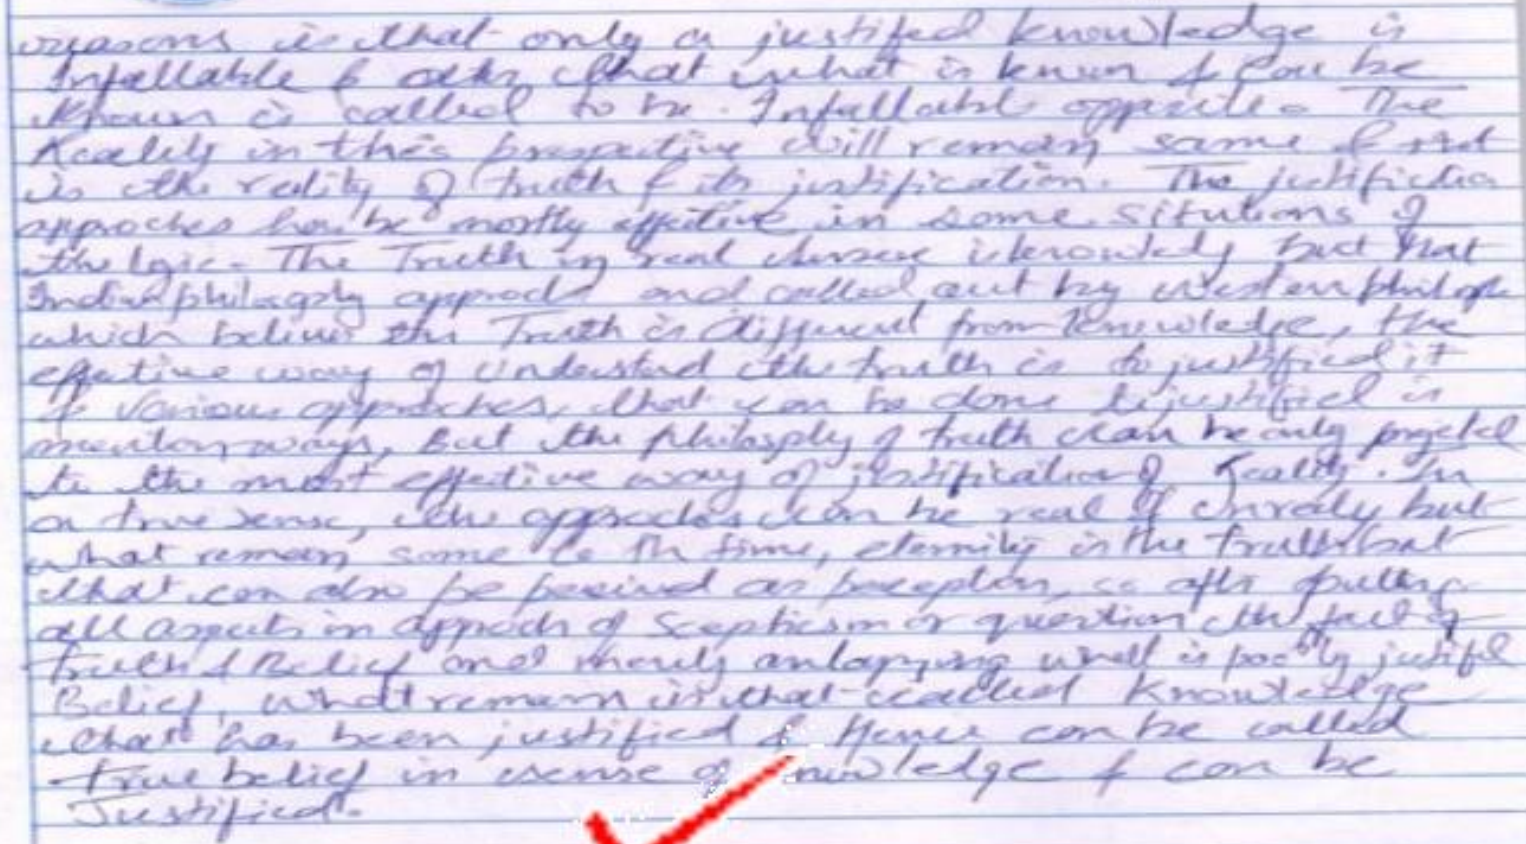 reasons is that only a justifed knowledge is
Infallable & that what is known & can be
Known is called to be Infallable opposite. The
Reality in this prespective will remain same & not
is the reality of truth & its justification. The justifiction
approches have be mostly effective in some situtions of
the logic. The Truth in real is but that
Indian philosophy approach and called out by western philosp
which believes the Truth is different from knowledge, the
effective way of understand the truth is to justified it
& various approaches, that can be done justified in
ways, But the philosphy of truth can be only
to the most effective way of justification of reality. In
a true sense, the approaches can be real or but
what remain same time, eternity is the truth but
that can also be percived as perception, so after putting
all aspects in approach of Scepticism or question the fact of
Truth & Belief and merely what is justifi
Belief, what remain is that called Knowledge
that has been justified & Hence can be called
true belief in sense of knowledge & can be
Justified.